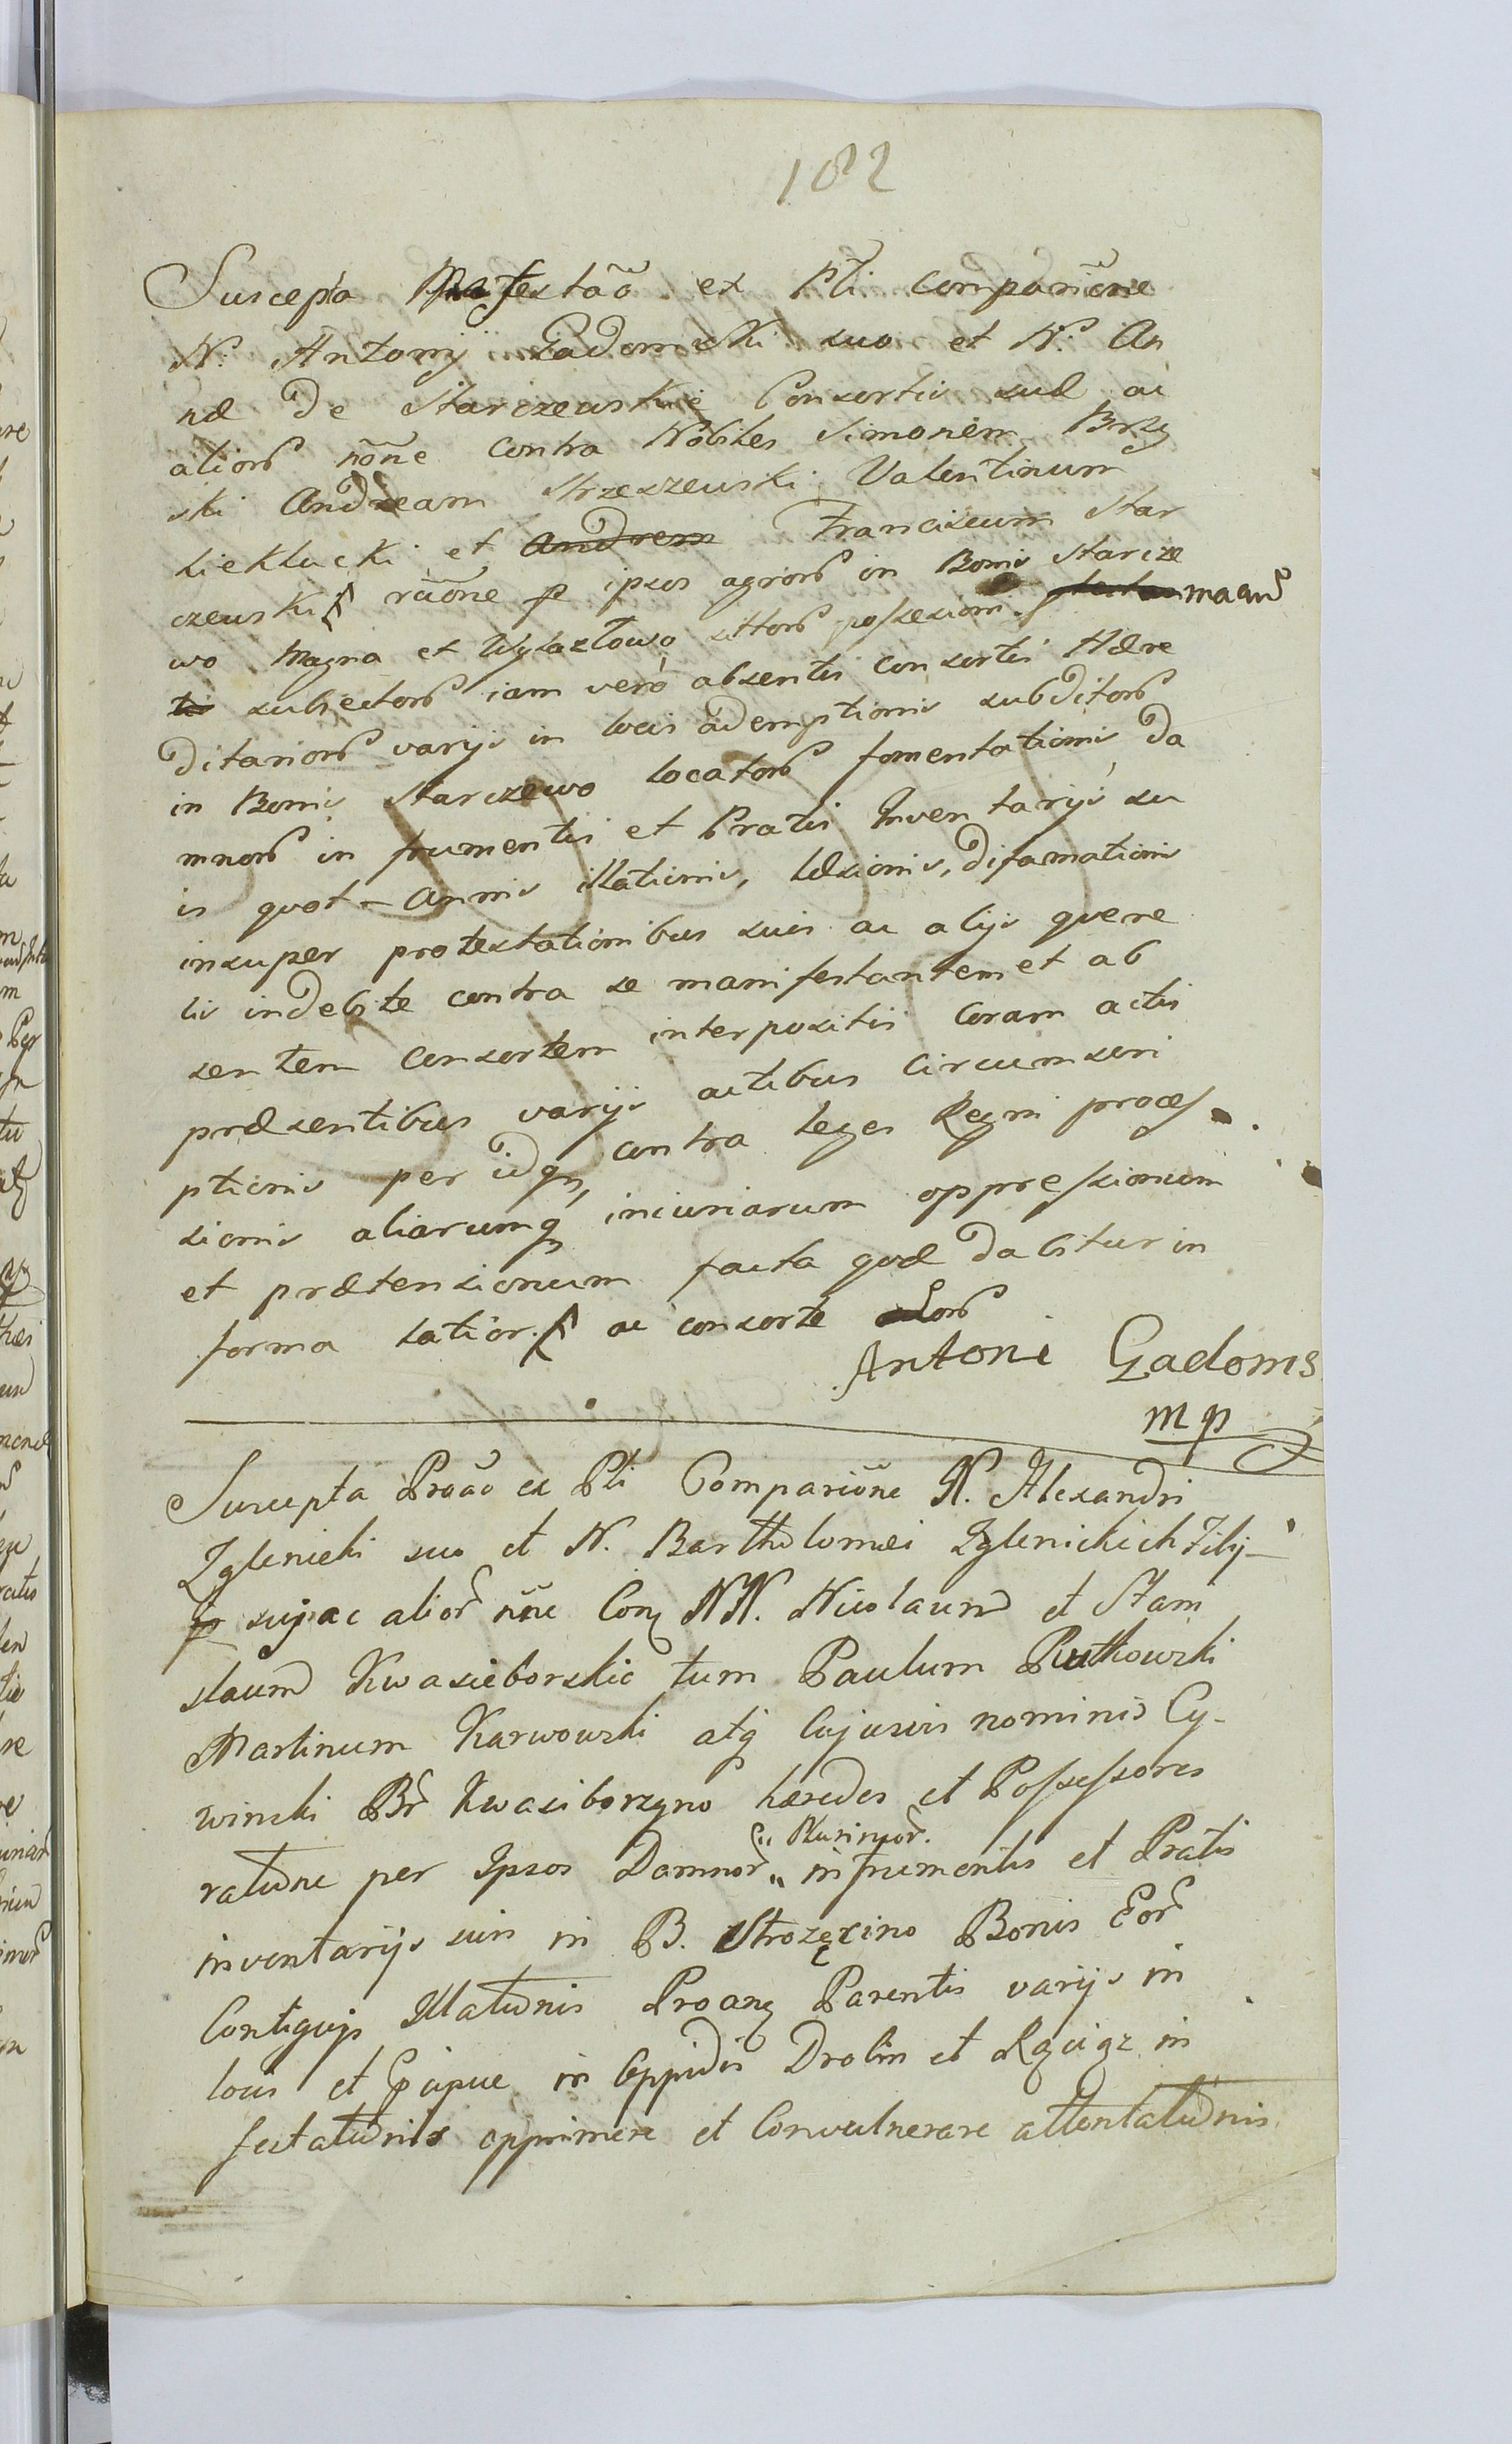 182
Suscepta Mafestaõ ex Pti compariõne
N. Antonij Gadomski suo et N. An
næ de Starczewskie Consortis suæ ac
alior noñe contra Nobiles Simonem Brzy
ski Andream Strzeszewski Valentinum
Siekłucki et Andrem Franciszum Star
czewski raõne p ipsos agror in Bonis Starcze
wo Magna et Wylazłowo sittor possesioni
tis subiector iam vero absentis consortis Hære
ditarior varijs in locis ademptionis subditor
in Bonis Starczewo locator fomentationis da
mnor in frumentis et Pratis Inventarijs su
is quot-Annis illationis, læsionis, difamationis
insuper protestationibus suis ac alijs quere
lis indebite contra se manifestantem et ab
sentem consortem interpositis coram actis
præsentibus varijs actibus circumscri
ptionis per idq contra leges Regni proces
sionis aliarumq iniuriarum oppressionum
et prætensionum facta quæ dabitur in
forma latior. ac consorte
Antoni Gadoms
mp
Suscepta Proaõ ex Pti Compariõne N. Alexandri
Zglenicki suo et N. Bartholomæi Zglenickich Filij
p sui ac alior nõe Con NN. Nicolaum et Stani
slaum Kwasieborskie tum Paulum Rutkowski
Martinum Karwowski atq Cujusvis nominis Cy-
winski Br Kwasiborzyno hæredes et Possessores
ratione per Ipsos Damnor „ in frumentis et Pratis
Plurimor.
inventarijs suis in B. Strozęcino Bonis Eor
Contiguis Illationis Proang Parentis varijs in
locis et Pcipue in Oppidis Drobin et Raciąz in
sectationis opprimere et Convulnerare attentationis